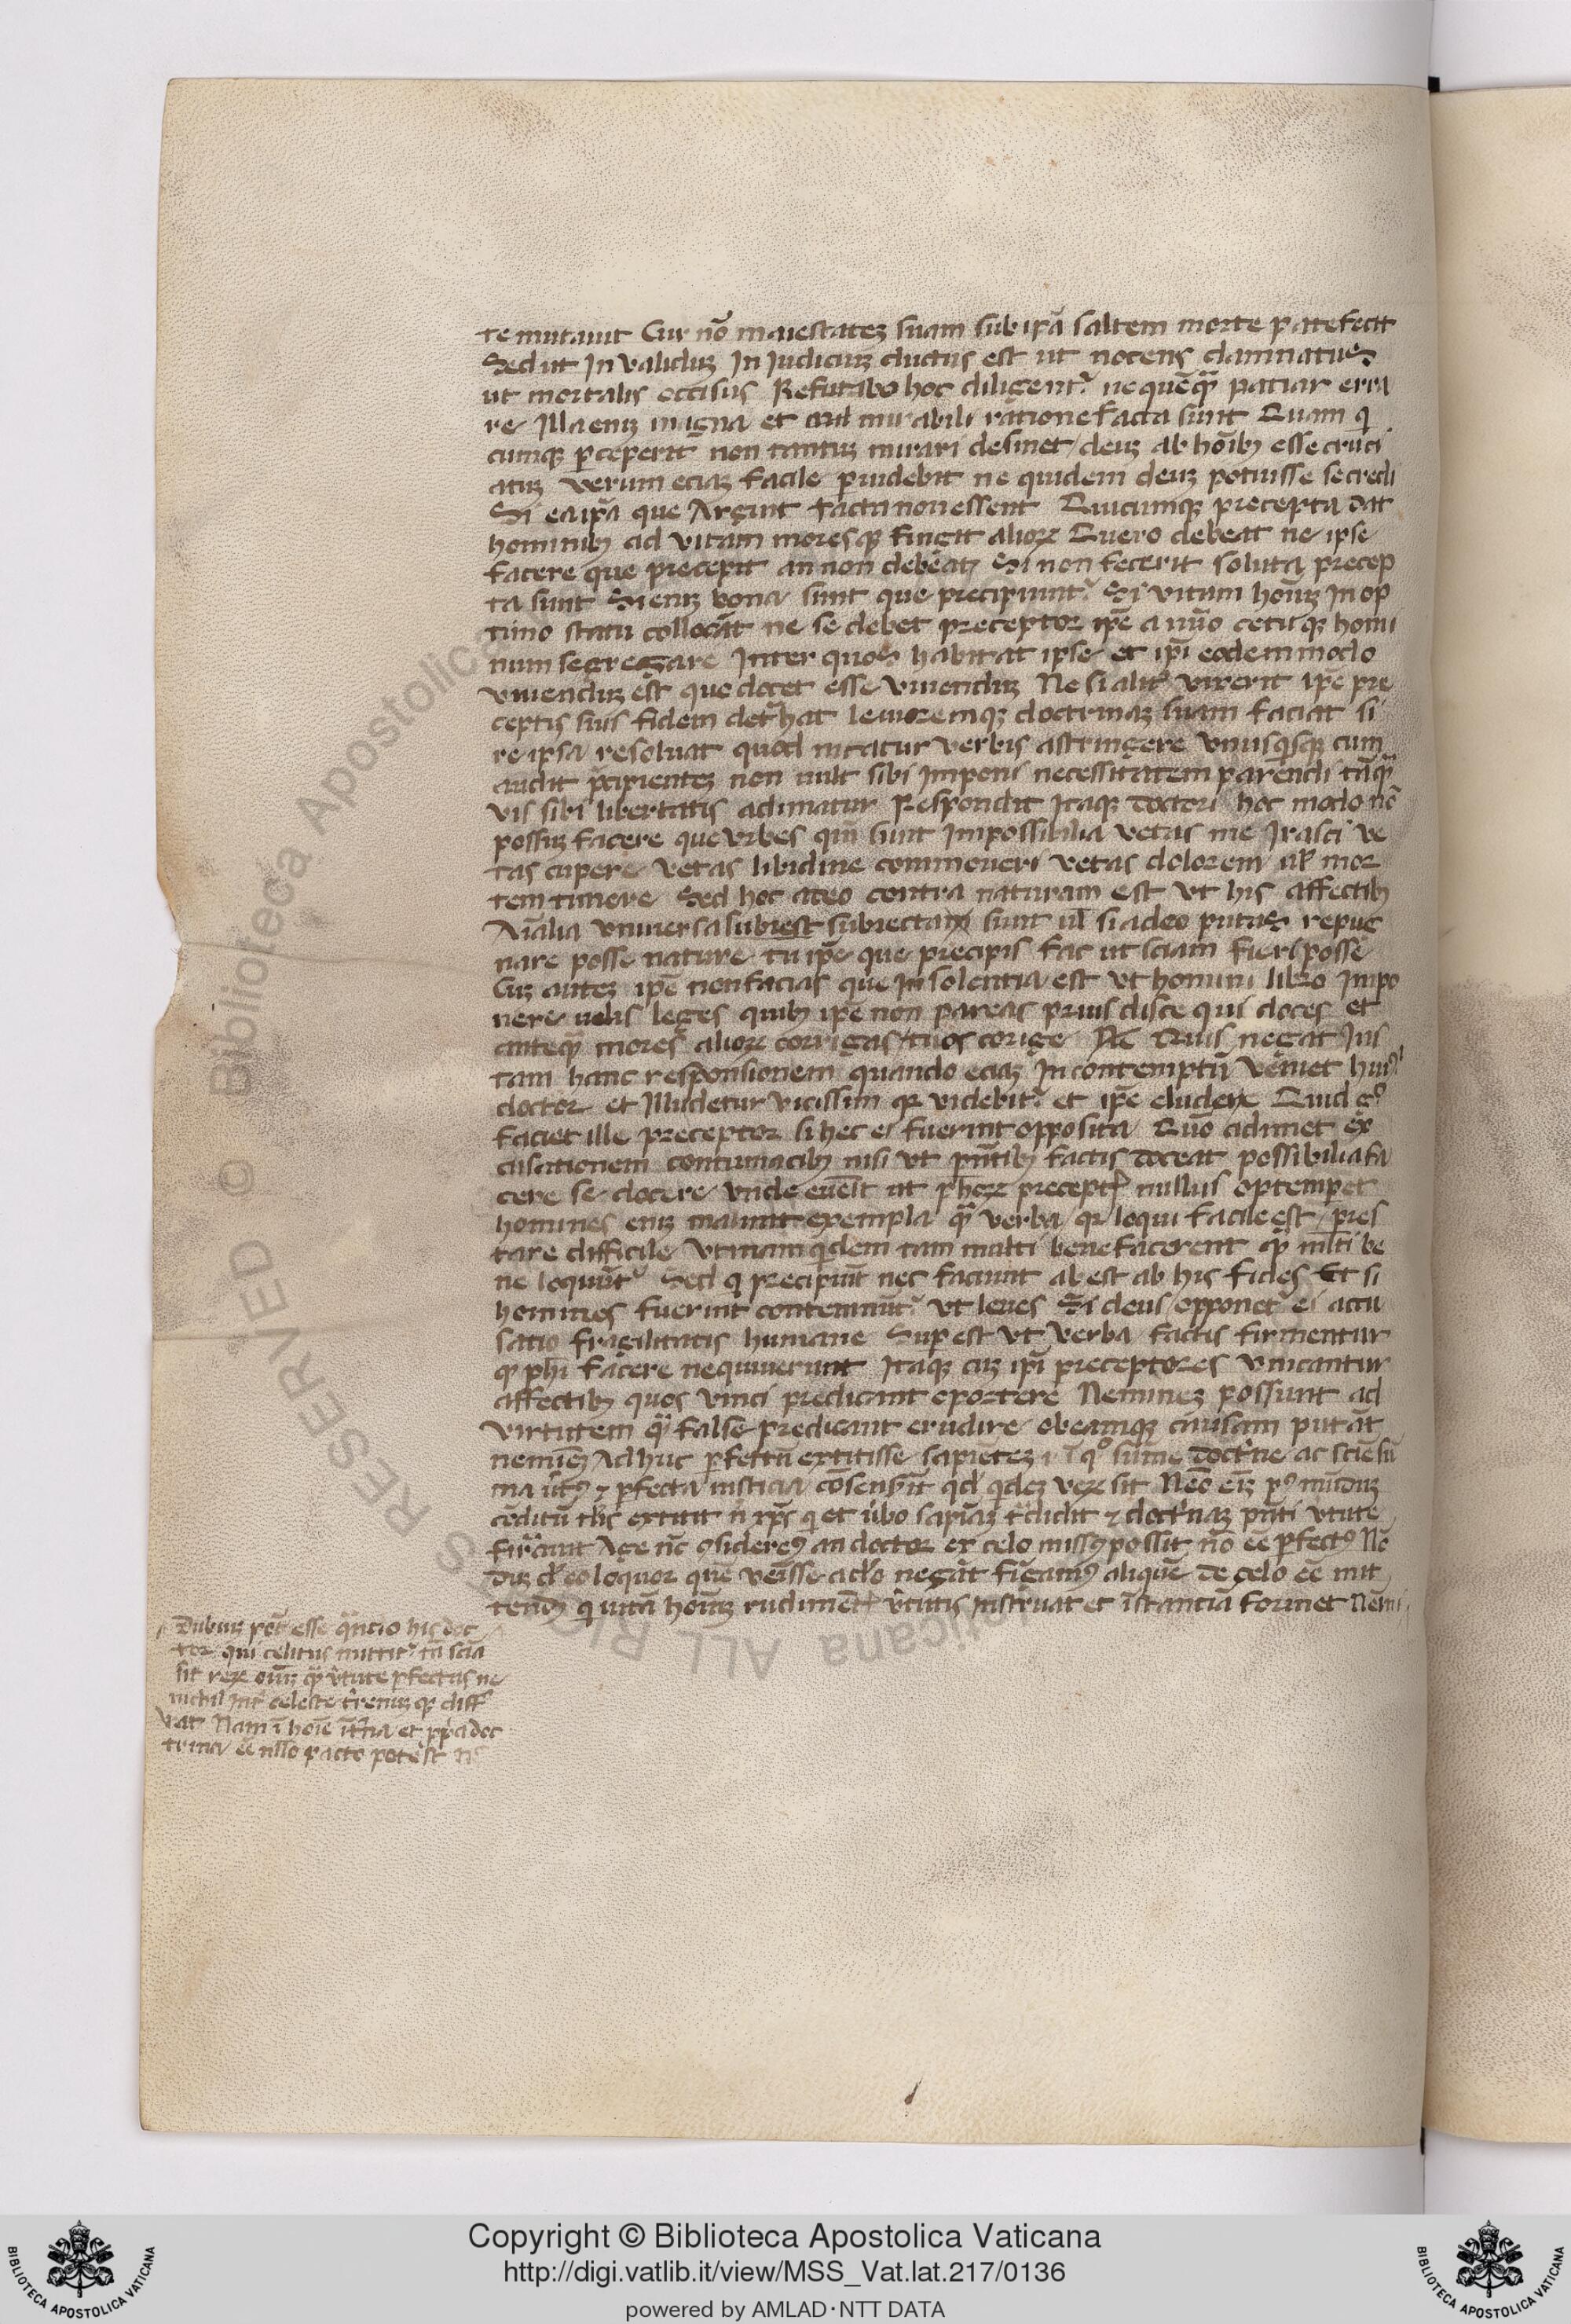 te mutauit Cur nō maiestateʒ suam sub ip̄a saltem morte patefecit
Sed ut Inualiduʒ In Iudiciuʒ ductus est ut nocens damnatus
ut mortalis occisus Refutabo hoc diligent̄ ne quēq̄ patiar erra
re Illa eniʒ magna et mirabili ratione facta sunt Quam qi
cumqʒ ꝑceperit non tantuʒ mirari desinet deuʒ ab hoībʒ esse cruci
atuʒ verum eciaʒ facile ꝑuidebit ne quidem deuʒ potuisse se credi
Si ea ip̄a que Arguit facta non essent Quicumqʒ precepta dat
hominibʒ ad vitam moresqʒ fingit alioꝝ Quero debeat ne ipse
facere que precepit an non debeat Si non fecerit soluta precep
ta sunt Si eniʒ bona sunt que precipiunt̄ Si vitam hoīuʒ In op
timo statu collocāt ne se debet preceptor ip̄e a nūo cetuqʒ homi
num segregare Inter quos habitat ipse et ip̄i eodem modo
viuenduʒ est que docet esse viuenduʒ Ne si alit̄ vixerit ip̄e pre
ceptis suis fidem det̄hat leuioremqʒ doctrinaʒ suam faciat si
re ipsa resoluat quod nitatur verbis astringere vnusqisqʒ cum
audit p̄cipienteʒ non uult sibi Imponi necessitatem parendi tāq̄
vis sibi libertatis adimatur Respondit Itaqʒ doctori hoc modo nō
possuʒ facere que Iubes qm̄ sunt Impossibilia vetas me Irasci ve
tas cupere vetas libidine commoueri vetas dolorem ul̄ mor
tem timere Sed hoc adeo contra naturam est vt his affectibʒ
Aīalia vniuersa subiecta sunt ul̄ si adeo putas repug
nare posse nature tu ip̄e que precipis fac ut sciam fieri posse
Cuʒ auteʒ ip̄e non facias que Insolentia est vt homini libro Impo
nere uelis leges quibʒ ip̄e non pareas prius disce qui doces et
anteqʒ mores alioꝝ corrigas tuos corige Quis negat Ius
tam hanc responsionem quando eciaʒ In contemptū veniet hui9
doctor et Illudetur vicissim qꝛ videbit̄ et ip̄e eludere Quid g̊
faciet ille preceptor si hec ei fuerint opposita Quō adimet ex
cusationem contumacibʒ nisi vt p̄ntibʒ factis doceat possibilia fa
cere se docere vnde euēit ut ꝑhoꝝ precept̄ nullus optempet
homines eniʒ malunt exempla q̄ verba qꝛ loqui facile est pres
tare difficile vtinam qidem tam multi bene facerent q̄ mlti be
ne loquūt̄ Sed q precipiūt nec faciunt abest ab his fides Et si
homines fuerint contemnūt̄ vt leues Si deus opponet̄ ei accu
satio fragilitatis humane Suꝑest vt verba factis firmentur
qʒ phi facere nequiuerunt Itaqʒ cuʒ ip̄i preceptores vincantur
affectibʒ quos vinci predicant oportere Nemineʒ possunt ad
virtutem q̄ false predicant erudire obeamqʒ causam putāt
nemīeʒ Adhuc ꝑfectū extitisse sapiēteʒ i ī qo sūme doctīne ac scīe sū
ma v̄t9 ⁊ ꝑfecta iusticia cōsensīt qd̄ qideʒ veꝝ sit Nēo eīʒ p9 mūduʒ
cōditū extitit ū xp̄s q et v̄bo sapīaʒ t̄didit ⁊ doct̄naʒ p̄nti v̄tute
fir̄auit Age nc̄ ꝯsiderem9 an doctor ex celo miss9 possit nō eē ꝑfect9 Nō
duʒ d̄ eo loquor quē veīsse negāt fīgam9 aliquē de celo eē mit
tend9 q vitā hoīuʒ rudimēt v̄tutis Instruat et īstantia formet Nēmi
Dubiuʒ pōt esse q̄ntio his doc
tor qui celitus mittit̄ tā scīa
sit reꝝ oīuʒ q̄ v̄tute ꝑfectus ne
nichil int̄ celeste t̄renuʒqʒ diff
rat Nam ī hoīe īt̄na et ꝓpria doc
trina eē nllo pacto potest
Copyright © Biblioteca Apostolica Vaticana
http://digi.vatlib.it/view/MSS_Vat.lat.217/0136
powered by AMLAD·NTT DATA
BIBLIOTECA APOSTOLICA VATICANA
BIBLIOTECA APOSTOLICA VATICANA